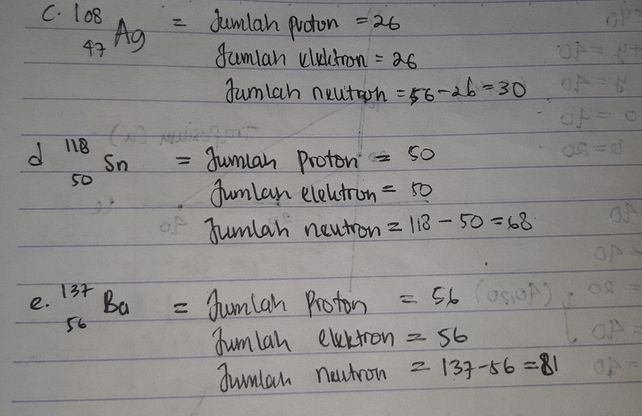 c. 108 47 Ag = Jumlah proton = 26
Jumlah elektron = 26
Jumlah neutron = 56 - 26 = 30
d 118 50 Sn = Jumlah proton = 50
Jumlah elektron = 50
Jumlah neutron = 118 - 50 = 68
e. 137 56 Ba = Jumlah Proton = 56
Jumlah elektron = 56
Jumlah neutron = 137-56 = 81